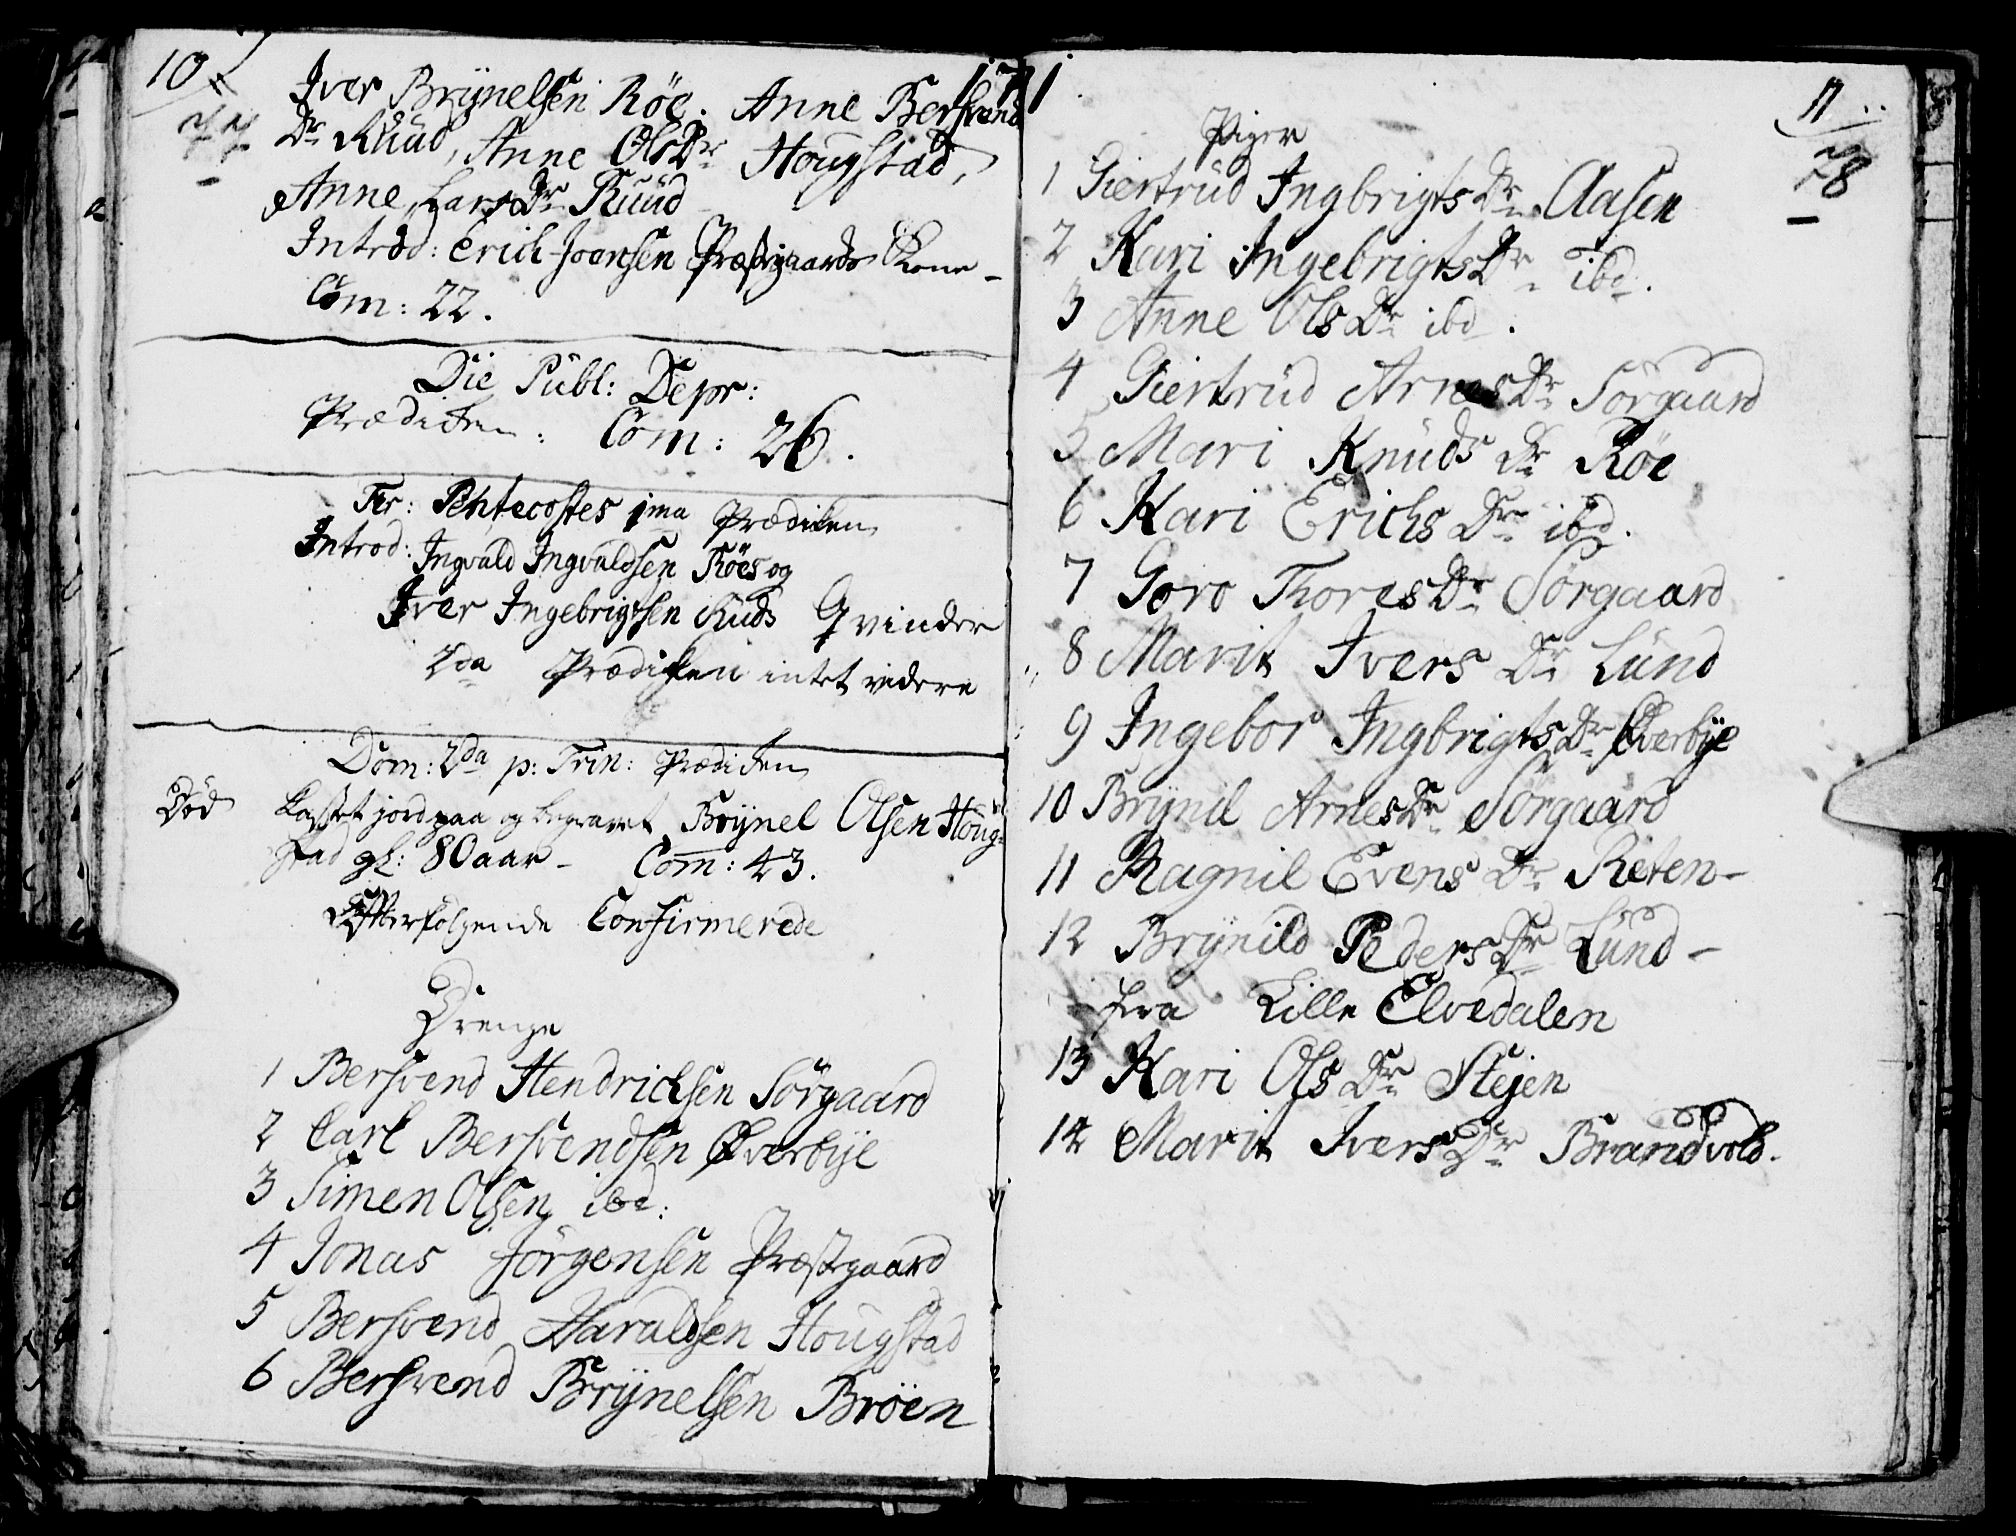 10
77
Iver Brÿnelsen Röe. Anne Bersvend
Dr Ruud, Anne OlsDr Hougstad,
Anne LarsDr Ruud
Introd: Erich Joensen Præstgaards Kone -
Com: 22.
Die Publ: Depr:
Prædiken: Com: 26.
Fer: Pentecostes 1ma Prædiken
Introd: Ingvald Ingvaldsen Röes og
Iver Ingebrigtsen Ruds Qvinder
2da Prædiken intet videre
Dom: 2da p: Trin: Prædiken
Död Kastet jord paa og begravet Brÿnel Olsen Houg-
stad gl: 80 aar - Com: 43.
Efterfölgende Confirmerede
Drenge
1 Bersvend Hendrichsen Sörgaard
2 Carl Bersvendsen Øverbÿe
3 Simen Olsen ibd:
4 Jonas Jörgensen Præstgaard
5 Bersvend Haraldsen Hougstad
6 Bersvend Brÿnelsen Bröen
1781
11
78
Piger
1 Giertrud IngbrigtsDr Aasen
2 Kari IngebrigtsDr ibd.
3 Anne OlsDr ibd.
4 Giertrud ArnesDr Sörgaard
5 Mari KnudsDr Röe
6 Kari ErichsDr ibd.
7 Goro ThoresDr Sörgaard
8 Marit IversDr Lund
9 Ingebor IngbrigtsDr Øverbÿe
10 Brÿnil ArnesDr Sörgaard
11 Ragnil EvensDr Reten -
12 Brÿnild PedersDr Lund -
fra Lille Elvedalen
13 Kari OlsDr Stejen
14 Marit IversDr Brandvold.